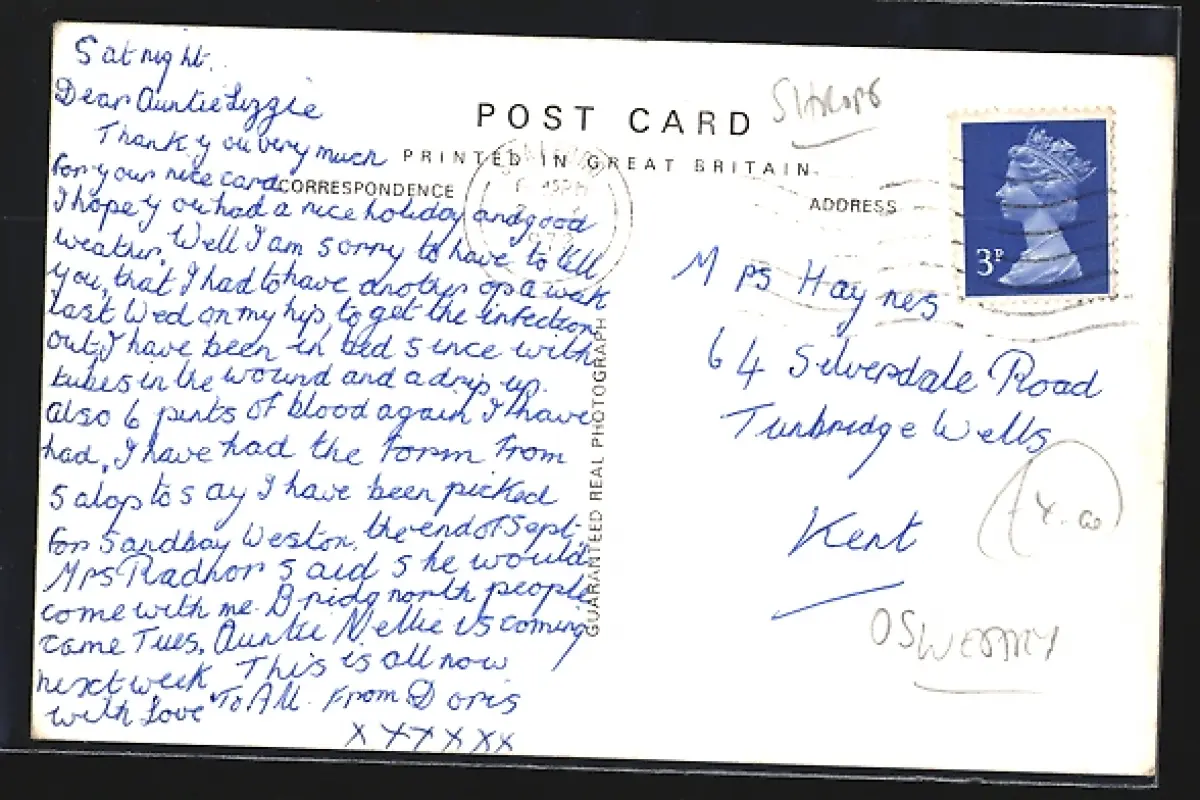 Sat night.
Dear Auntie Lizzie
Thank you very much
for your nice card
I hope you had a nice holiday and good
weather. Well I am sorry to have to tell
you, that I had to have another op a week
last Wed on my hip, to get the infection
out, I have been in bed since with
tubes in the wound and a drip up.
also 6 pints of blood again I have
had, I have had the form from
Salop to say I have been picked
for Sandbay Weston, the end of Sept.
Mrs Radnor said she would
come with me. Bridgnorth people
came Tues, Auntie Nellie is coming
next week This is all now
with Love To All. From Doris
X X X X X X
POST CARD
PRINTED IN GREAT BRITAIN
CORRESPONDENCE
ADDRESS
GUARANTEED REAL PHOTOGRAPH
SHROPS
3P
Mrs Haynes
64 Silverdale Road
Tunbridge Wells
Kent
OSWESTRY